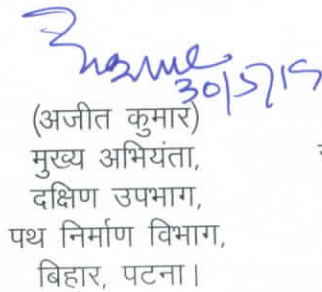 30/5/19
(अजीत कुमार)
मुख्य अभियंता,
दक्षिण उपभाग,
पथ निर्माण विभाग,
बिहार, पटना।